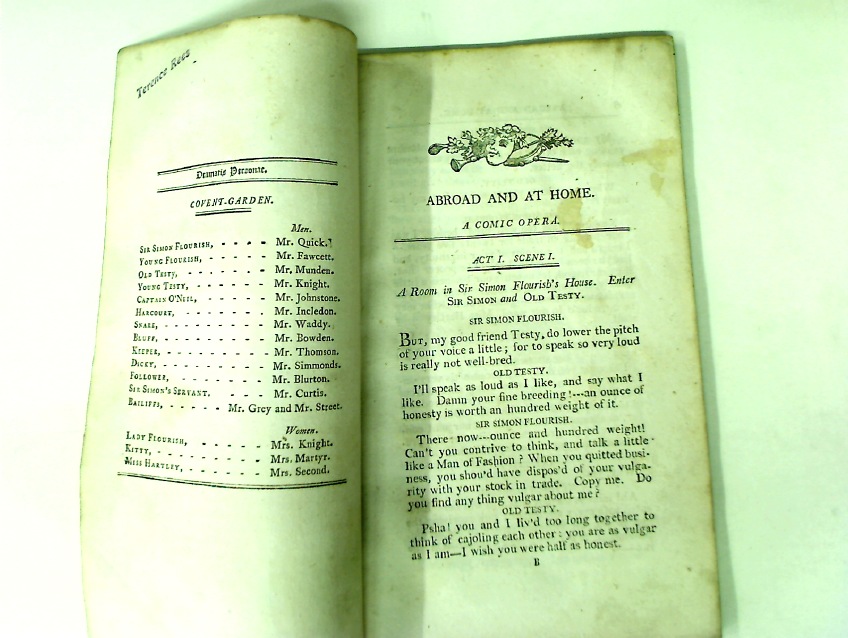 Terence Rees
Dramatis Personae.
COVENT-GARDEN.
Men.
SIR SIMON FLOURISH, - - - - Mr. Quick.
YOUNG FLOURISH, - - - - - Mr. Fawcett.
OLD TESTY, - - - - - - - Mr. Munden.
YOUNG TESTY, - - - - - - Mr. Knight.
CAPTAIN O'NEIL, - - - - - - Mr. Johnstone.
HARCOURT, - - - - - - - Mr. Incledon.
SNARE, - - - - - - - - Mr. Waddy.
BLUFF, - - - - - - - - Mr. Bowden.
KEEPER, - - - - - - - - Mr. Thomson.
DICKY, - - - - - - - - Mr. Simmonds.
FOLLOWER, - - - - - - - Mr. Blurton.
SIR SIMON'S SERVANT, - - - Mr. Curtis.
BAILIFFS, - - - - - Mr. Grey and Mr. Street.
Women.
LADY FLOURISH, - - - - - Mrs. Knight.
KITTY, - - - - - - - - Mrs. Martyr.
MISS HARTLEY, - - - - - - Mrs. Second.
ABROAD AND AT HOME.
A COMIC OPERA.
ACT I. SCENE I.
A Room in Sir Simon Flourish's House. Enter
SIR SIMON and OLD TESTY.
SIR SIMON FLOURISH.
BUT, my good friend Testy, do lower the pitch
of your voice a little; for to speak so very loud
is really not well-bred.
OLD TESTY.
I'll speak as loud as I like, and say what I
like. Damn your fine breeding!---an ounce of
honesty is worth an hundred weight of it.
SIR SIMON FLOURISH.
There now---ounce and hundred weight!
Can't you contrive to think, and talk a little
like a Man of Fashion? When you quitted busi-
ness, you shou'd have dispos'd of your vulga-
rity with your stock in trade. Copy me. Do
you find any thing vulgar about me?
OLD TESTY.
Psha! you and I liv'd too long together to
think of cajoling each other: you are as vulgar
as I am—I wish you were half as honest.
B